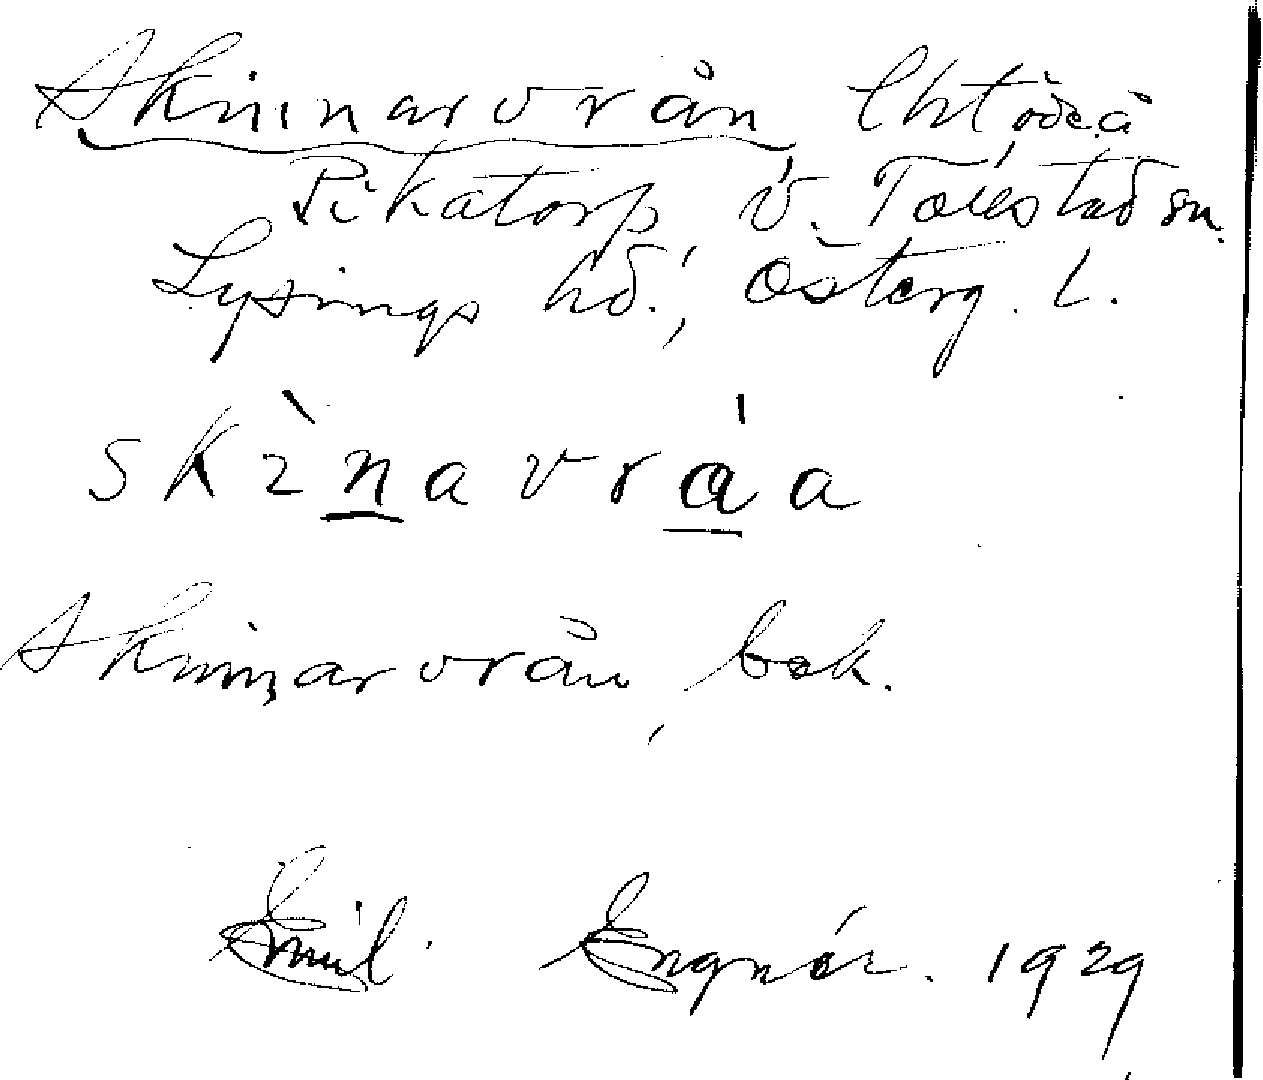 Skinnarvrån,
Pikatorp, V. Tollstad sn.
Lysings hd., Österg. l.
skìnavráa
Skinnarvrån, bek.
Emil Engnér. 1929